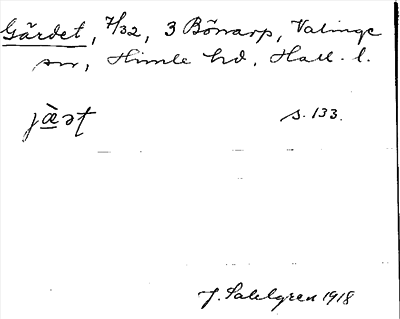 Gärdet, 7/32, 3 Bönarp, Valinge
sn, Himle hd, Hall. l.
jæ̀ət s. 133.
J. Sahlgren 1918